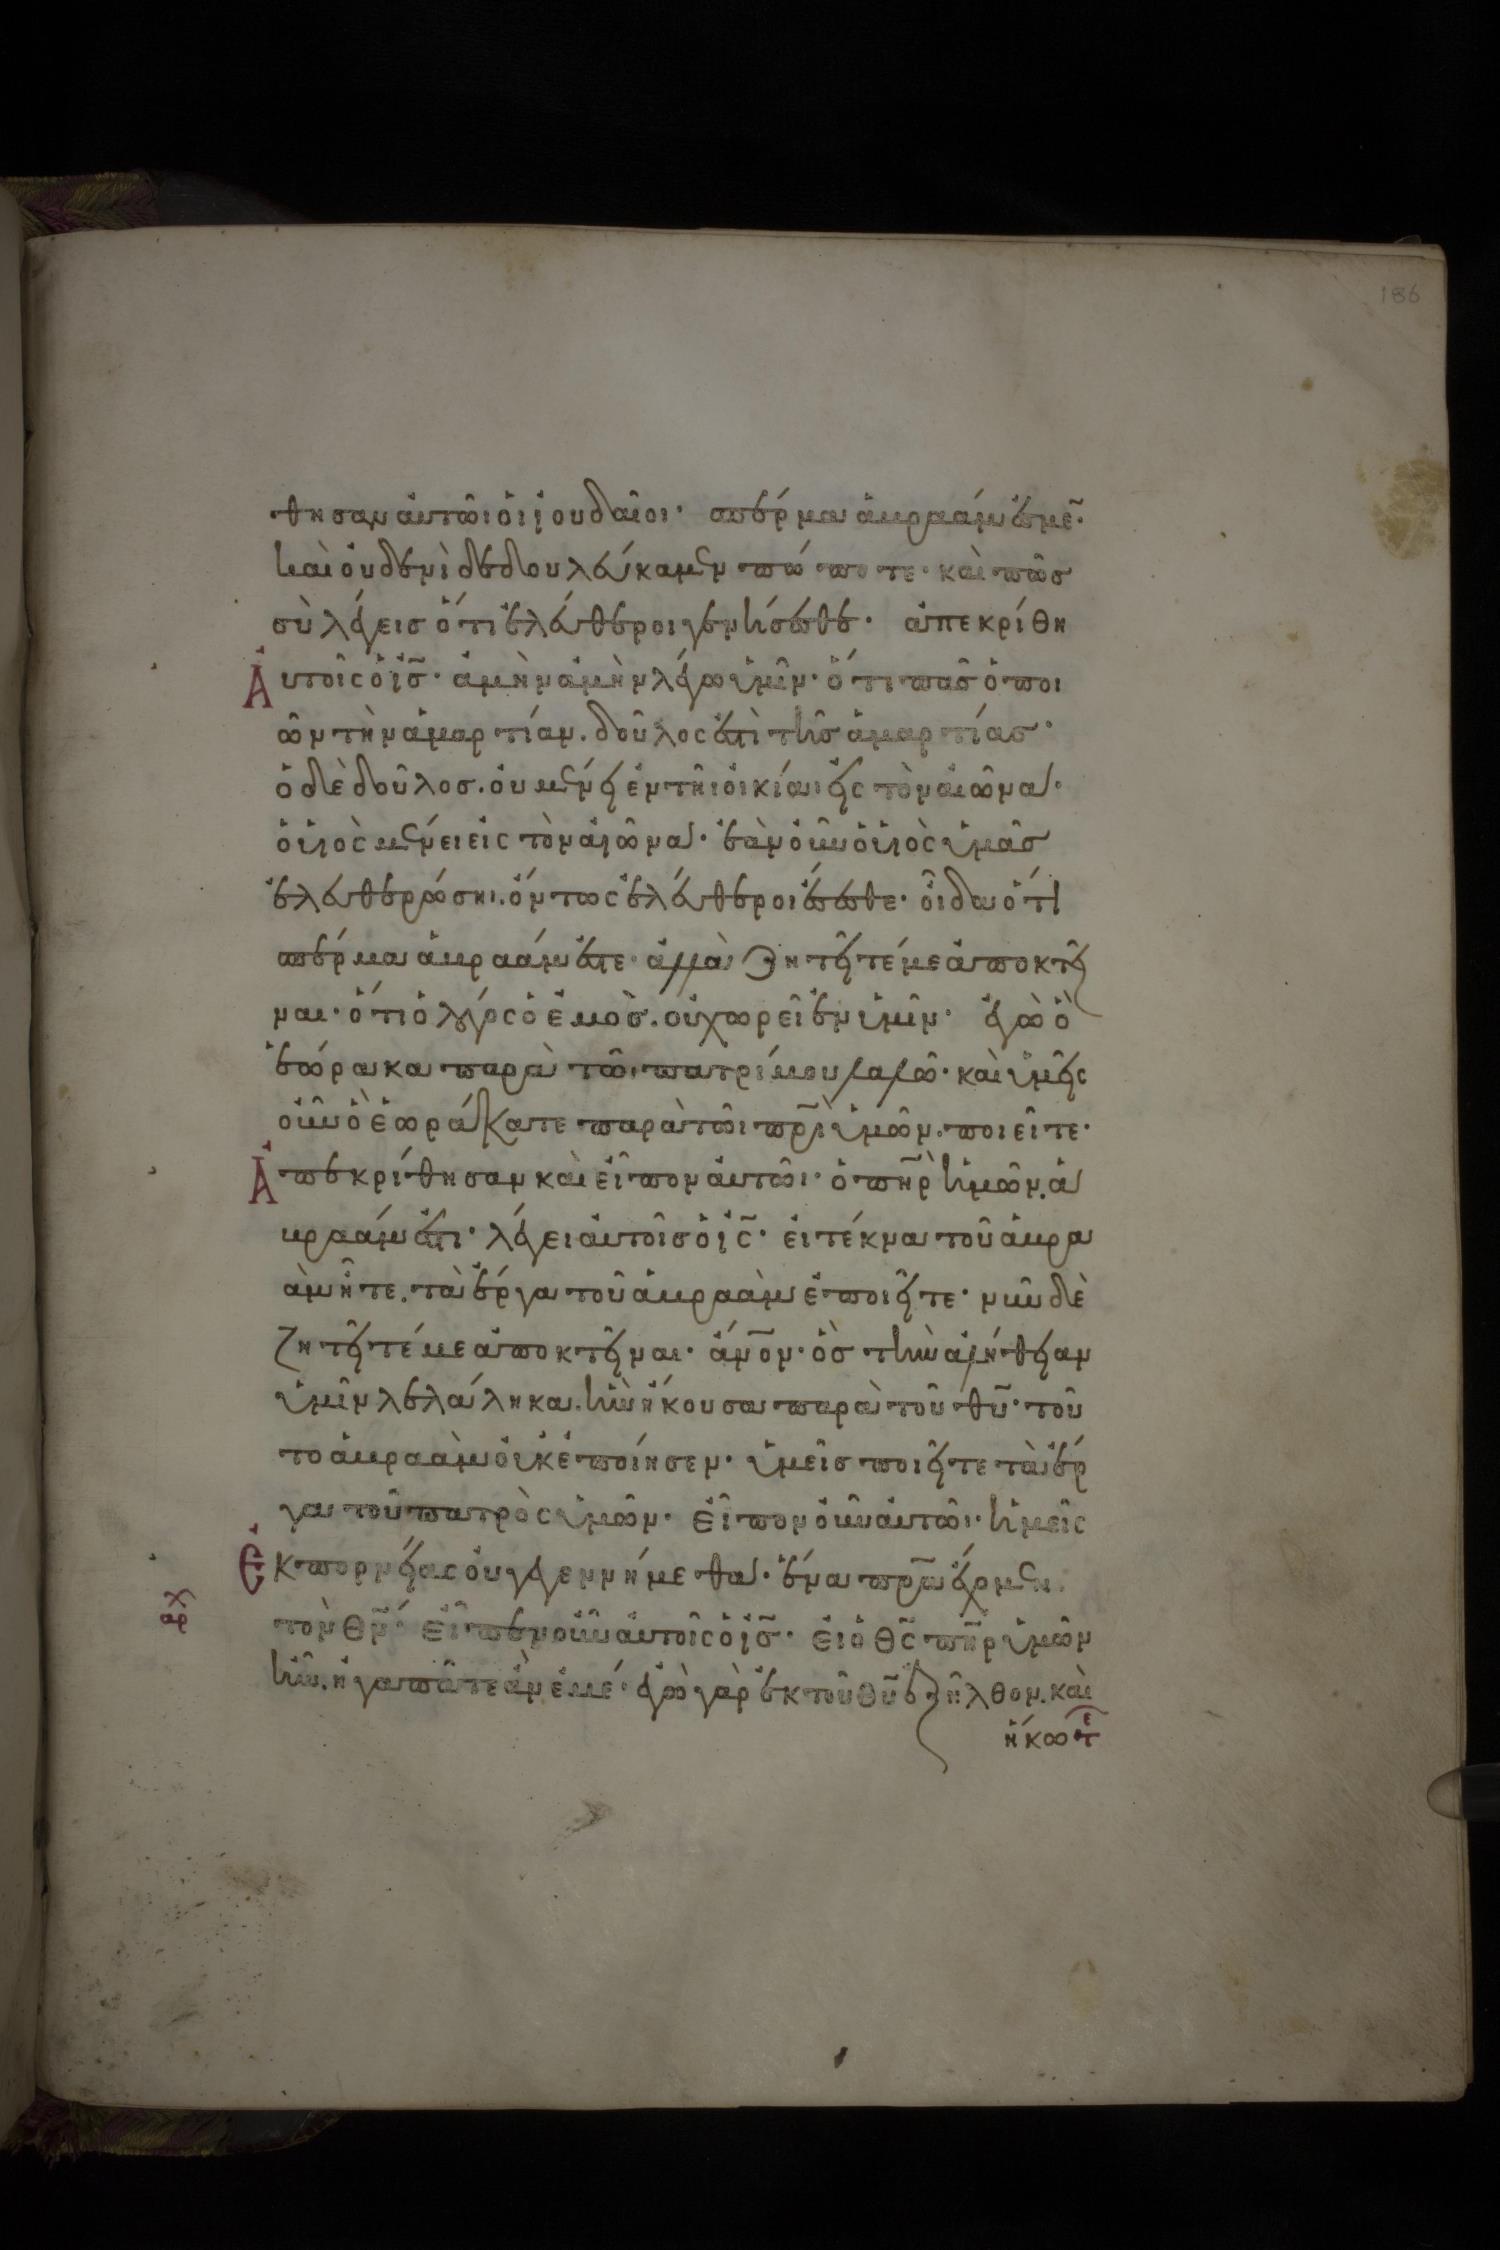 186
θησαν ἀυτῶι ὁι ἰουδαῖοι· σπέρμα ἀβραάμ ἐσμε̃·
καὶ ὀυδενὶ δεδουλέυκαμεν πώποτε· καὶ πῶσ
σὺ λέγεισ ὅτι ἐλέυθεροι γενήσεσθε· ἀπεκρίθη
Ἀυτοῖς ὁ ἰσ̃· ἀμὴν ἀμὴν λέγω ὑμῖν· ὅτι πᾶσ ὁ ποι
ῶν τὴν ἁμαρτίαν. δοῦλος ἐστὶ τῆσ ἁμαρτίασ·
ὁ δὲ δοῦλοσ. ὀυ μένει ἐν τῆι ὀικίαι εἰς τὸν ἀιῶνα·
ὁ ὑιὸς μένει εἰς τὸν ἀιῶνα· ἐὰν ὀῦν ὁ ὑιὸς ὑμᾶσ
ἐλευθερώσηι. ὄντως ἐλέυθεροι ἔσεσθε· ὀῖδα ὅτι
σπέρμα ἀβραάμ ἐστε· ἀλλὰ ζητεῖτέ με ἀποκτεῖ
ναι· ὅτι ὁ λόγος ὁ ἐμὸσ. ὀυ χωρεῖ ἐν ὑμῖν· ἐγὼ ὃ
ἑώρακα παρὰ τῶι πατρί μου λαλῶ· καὶ ὑμεῖς
ὀῦν ὃ ἑωράκατε παρὰ τῶι πρ̃ι ὑμῶν. ποιεῖτε·
Ἀπεκρίθησαν καὶ εἶπον ἀυτῶι· ὁ πη̃ρ ἡμῶν ἀ
βραάμ ἐστι· λέγει ἀυτοῖσ ὁ ἰς̃· ἐι τέκνα τοῦ ἀβρα
ὰμ ἦτε. τὰ ἔργα τοῦ ἀβραὰμ ἐποιεῖτε· νῦν δὲ
ζητεῖτέ με ἀποκτεῖναι· ἄν̃ον· ὃσ τὴν ἀλήθειαν
ὑμῖν λελάληκα. ἣν ἤκουσα παρὰ τοῦ θυ̃· τοῦ
το ἀβραὰμ ὀυκ ἐποίησεν· ὑμεῖσ ποιεῖτε τὰ ἔρ
γα τοῦ πατρὸς ὑμῶν· εἶπον ὀῦν ἀυτῶι· ἡμεῖς
Ἐκ πορνείας ὀυ γεγεννήμεθα· ἕνα πρ̃α ἔχομεν
τὸν θν̃· εἶπεν ὀῦν ἀυτοῖς ὁ ἰσ̃· ἐι ὁ θς̃ πη̃ρ ὑμῶν
ἦν. ἠγαπᾶτε ἀν ἐμέ· ἐγὼ γὰρ ἐκ τοῦ θυ̃ ἐξῆλθον. καὶ
ἥκω τε